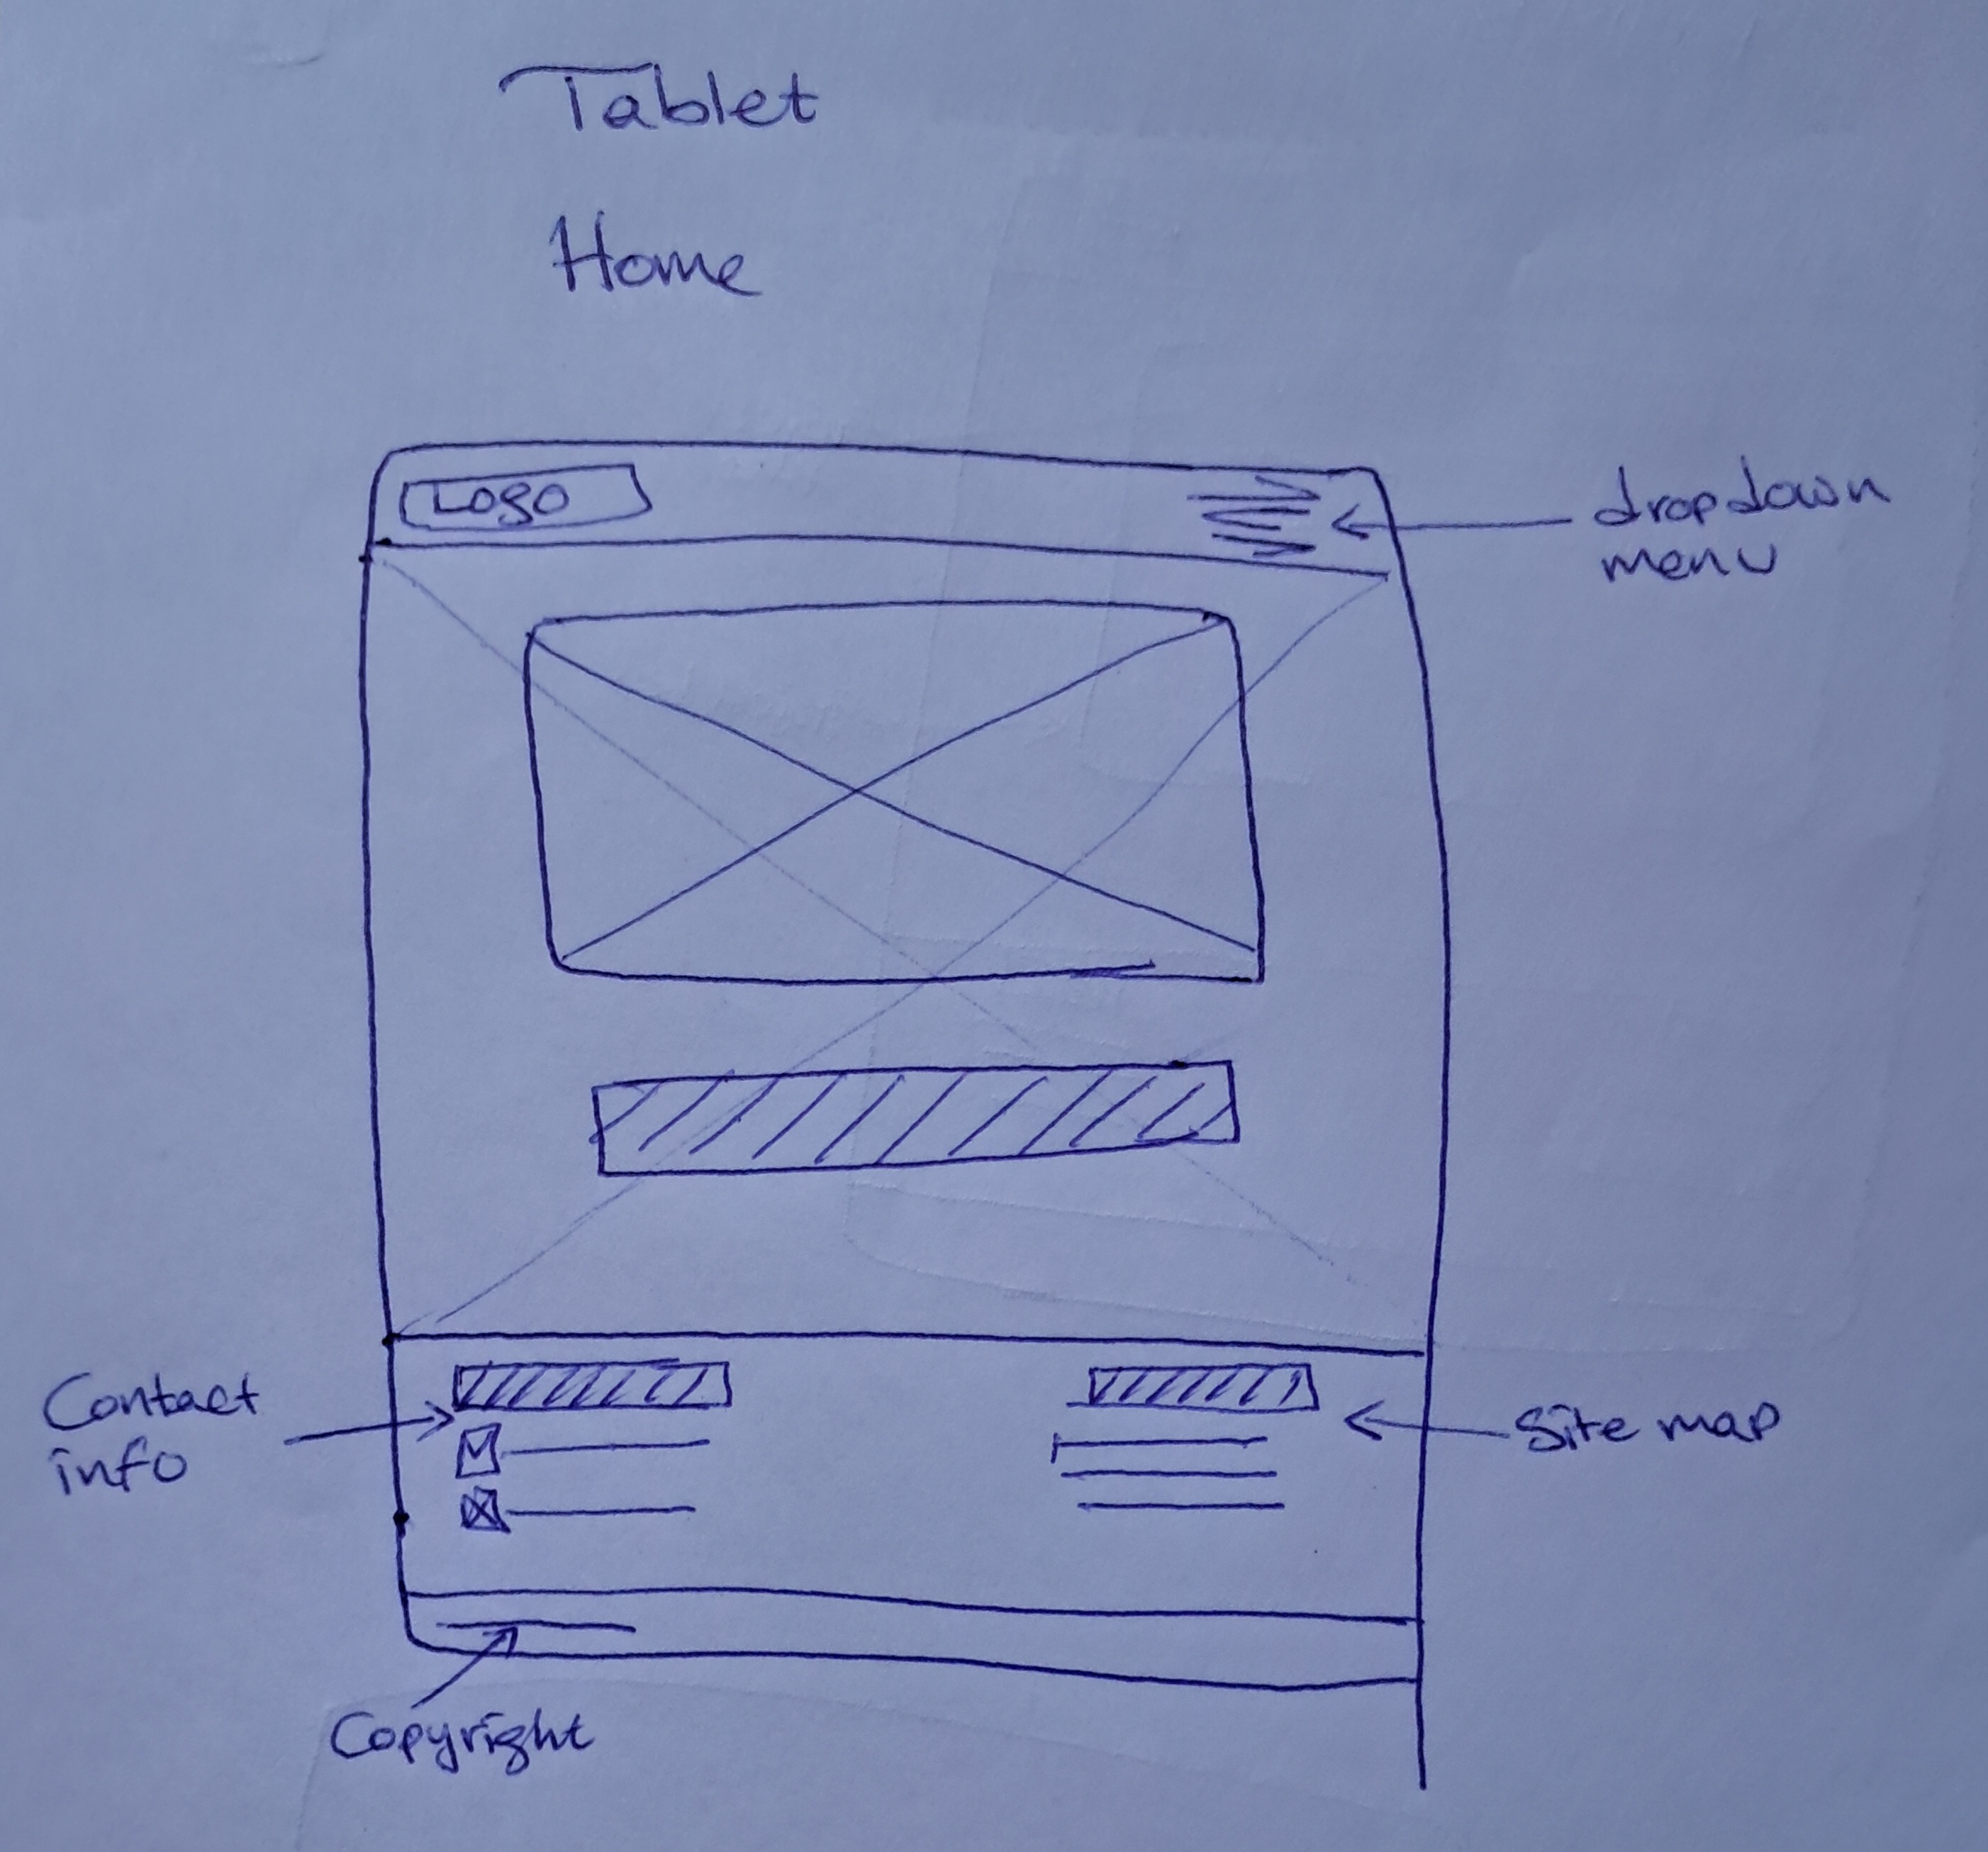 Tablet
Home
Logo
dropdown
menu
Contact
info
Site map
Copyright